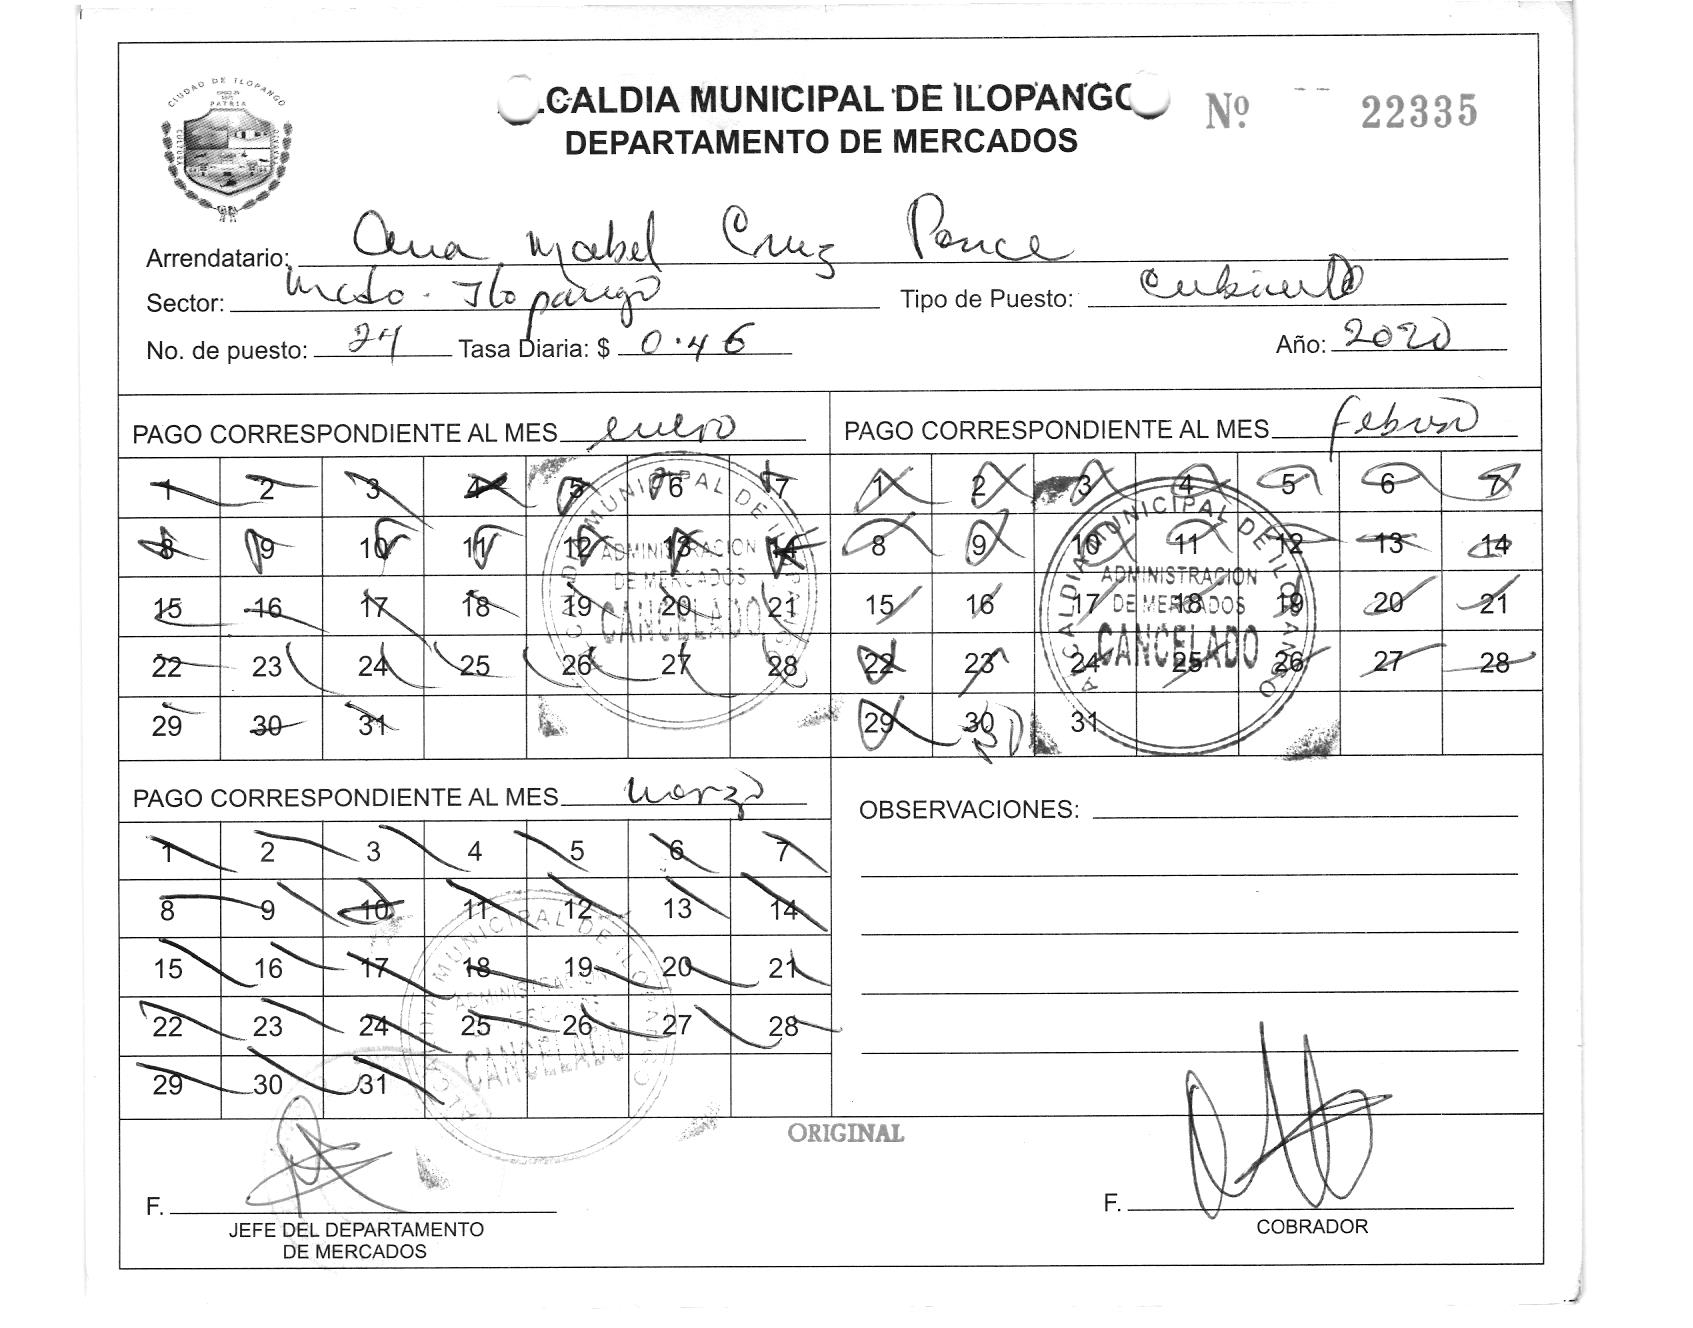 CIUDAD DE ILOPANGO
PATRIA
CULTURA
ALCALDIA MUNICIPAL DE ILOPANGO
DEPARTAMENTO DE MERCADOS
Nº 22335
Arrendatario: Ana Mabel Cruz Ponce
Sector: Mcdo. Ilopango Tipo de Puesto: Cubierto
No. de puesto: 24 Tasa Diaria: $ 0.46 Año: 2020
PAGO CORRESPONDIENTE AL MES enero
1 2 3 4 5 6 7
8 9 10 11 12 13 14
15 16 17 18 19 20 21
22 23 24 25 26 27 28
29 30 31
ALCALDIA MUNICIPAL DE ILOPANGO
ADMINISTRACION
DE MERCADOS
CANCELADO
PAGO CORRESPONDIENTE AL MES febrero
1 2 3 4 5 6 7
8 9 10 11 12 13 14
15 16 17 18 19 20 21
22 23 24 25 26 27 28
29 30 31
ALCALDIA MUNICIPAL DE ILOPANGO
ADMINISTRACION
DE MERCADOS
CANCELADO
PAGO CORRESPONDIENTE AL MES marzo
1 2 3 4 5 6 7
8 9 10 11 12 13 14
15 16 17 18 19 20 21
22 23 24 25 26 27 28
29 30 31
ALCALDIA MUNICIPAL DE ILOPANGO
ADMINISTRACION
DE MERCADOS
CANCELADO
OBSERVACIONES:
ORIGINAL
F.
JEFE DEL DEPARTAMENTO
DE MERCADOS
F.
COBRADOR